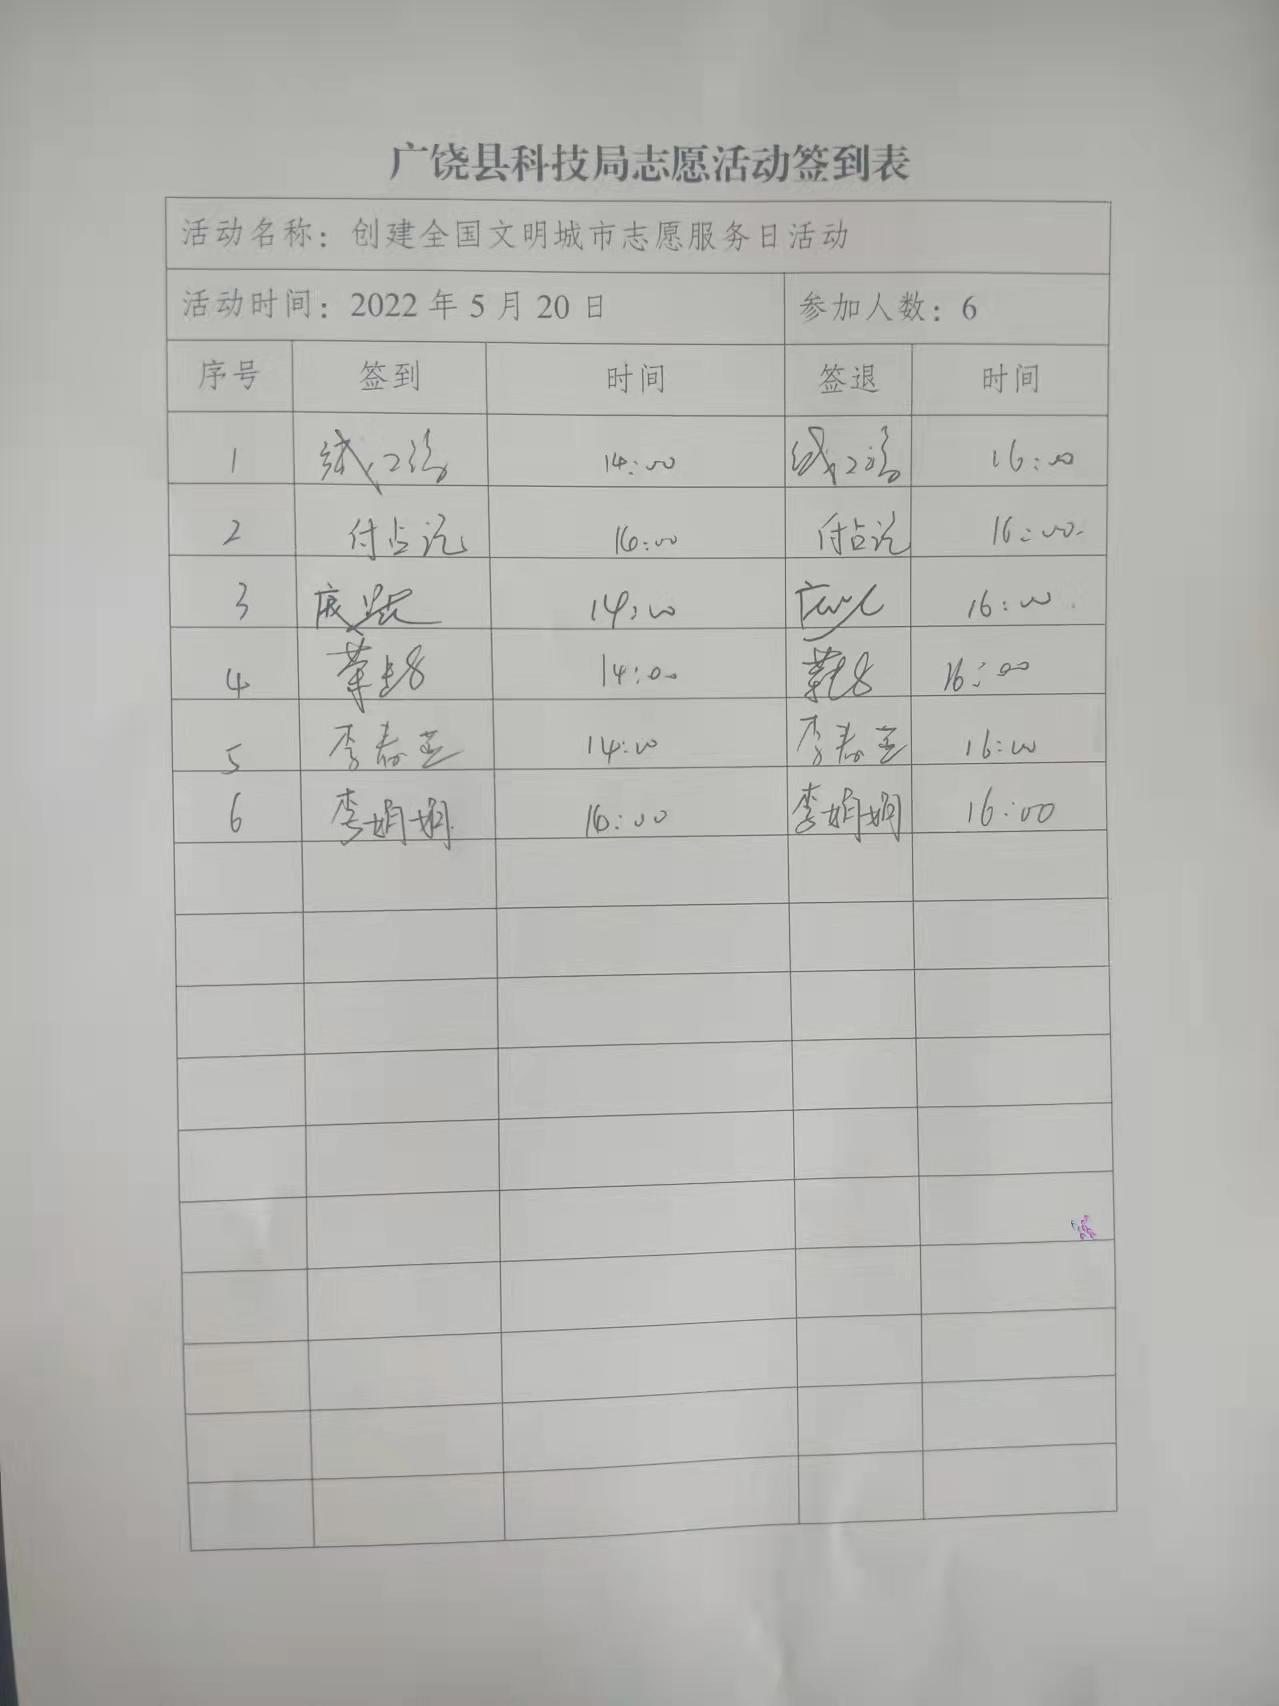 广饶县科技局志愿活动签到表
活动名称：创建全国文明城市志愿服务日活动
活动时间：2022 年 5 月 20 日 参加人数：6
序号 签到 时间 签退 时间
1 14:00 16:00
2 付占 16:00 付占 16:00
3 14:00 16:00
4 14:00 16:00
5 李春 14:00 李春 16:00
6 李娟娟 16:00 李娟娟 16:00